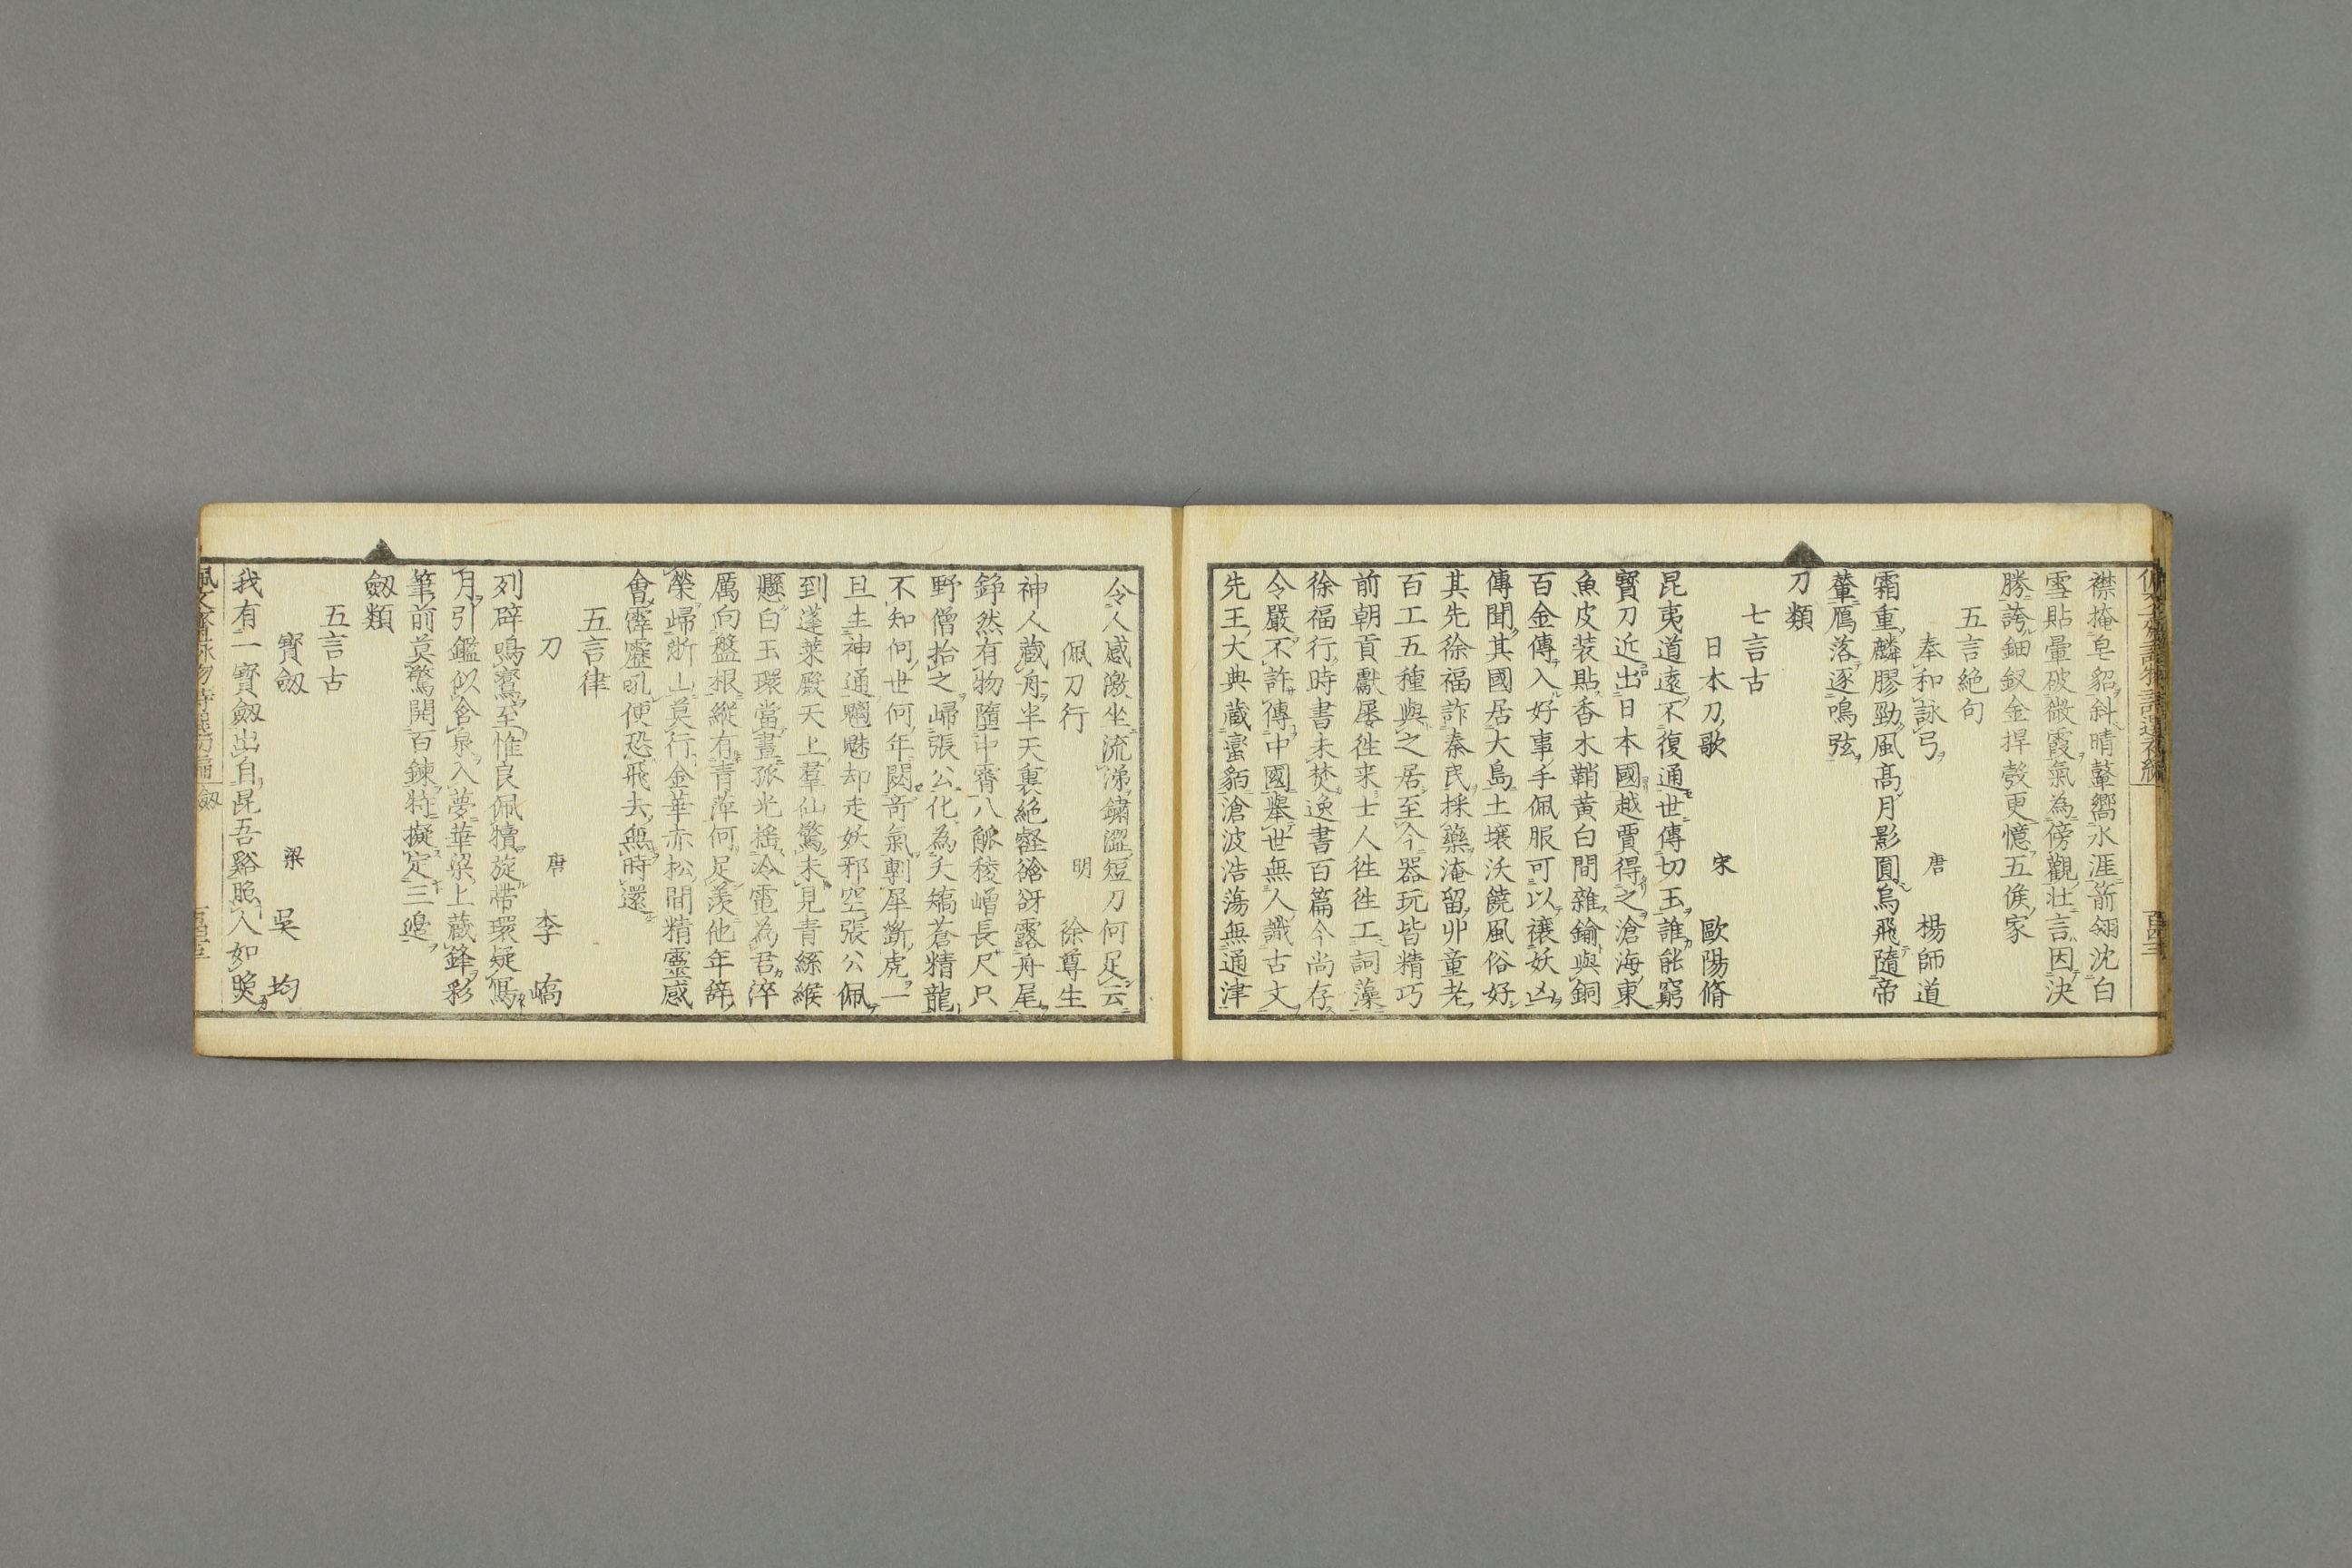 襟掩皂貂斜晴鼙嚮氷涯箭翎沈白
雪貼暈破微霞氣為傍觀壮言因决
勝誇鈿釵金捍彀更憶五侯家
五言絶句
奉和詠弓 唐 楊師道
霜重麟膠勁風髙月影圓烏飛隨帝
輦鴈落逐鳴弦
刀類
七言古
日本刀歌 宋 歐陽脩
昆夷道遠不復通世傳切玉誰能窮
寶刀近出日本國越賈得之滄海東
魚皮装貼香木鞘黄白間雜鍮與銅
百金傳入好事手佩服可以禳妖凶
傳聞其國居大島土壤沃饒風俗好
其先徐福詐秦民採藥淹留丱童老
百工五種與之居至今器玩皆精巧
前朝貢獻屡徃来士人徃徃工詞藻
徐福行時書未焚逸書百篇今尚存
令嚴不許傳中國擧世無人識古文
先王大典蔵蛮貊滄波浩蕩無通津
令人感激坐流涕鏽澀短刀何足云
佩刀行 明 徐尊生
神人藏舟半天裏絶壑谽谺露舟尾
錚然有物墮中霄八觚稜嶒長尺只
野僧拾之歸張公化為夭矯蒼精龍
不知何世何年閟竒氣剸犀斮虎一
旦生神通魍魅却走妖邪空張公佩
到蓬莱殿天上羣仙驚未見青絲緱
懸白玉環當晝孤光揺冷電為君淬
厲向盤根縱有青萍何足羨他年辭
榮歸浙山莫行金華赤松間精靈感
會霹靂吼便恐飛去無時還
五言律
刀 唐 李嶠
列辟鳴鸞至惟良佩犢旋帯環疑寫
月引鑑似含泉入夢華梁上蔵鋒彩
筆前莫驚開百鍊特擬定三邉
劔類
五言古
寳劔 梁 吳均
我有一寳劔出自昆吾谿照人如照